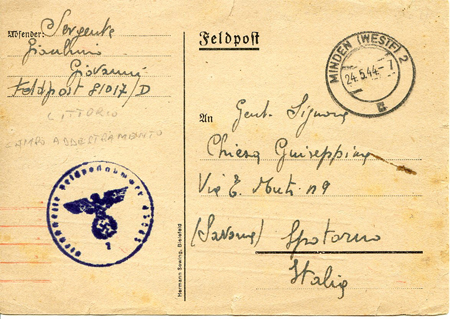 Absender: Sergente
Giovanni
Feldpost 81017/D
LITTORIO
CAMPO ADDESTRAMENTO
Feldpost
MINDEN (WESTF) 2
24.5.44.-7
An
Gent. Signora
Chiesa Guiseppina
Via E. Muti N 9
(Savona) Spotorno
Italia
Hermann Sewing, Bielefeld